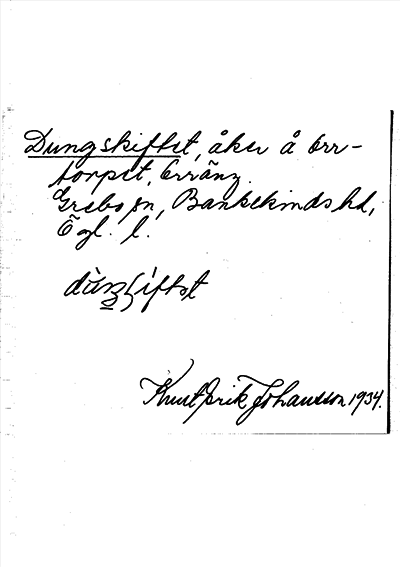 Dungskiftet, åker å Örr-
torpet, Örräng.
Grebo sn, Bankekinds hd,
Ögl. l.
Knut Erik Johansson 1934.